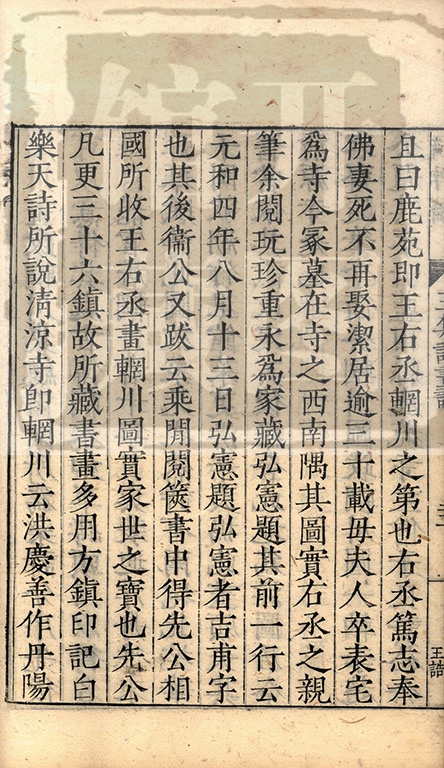 且曰鹿苑即王右丞輞川之第也右丞篤志奉
佛妻死不再娶潔居逾三十載毋夫人卒表宅
爲寺今冢墓在寺之西南隅其圖實右丞之親
筆余閱玩珍重永爲家藏弘憲題其前一行云
元和四年八月十三日弘憲題弘憲者吉甫字
也其後衞公又跋云乘閒閱篋書中得先公相
國所收王右丞畫輞川圖實家世之寶也先公
凡更三十六鎮故所藏書畫多用方鎮印記白
樂天詩所說清涼寺即輞川云洪慶善作丹陽